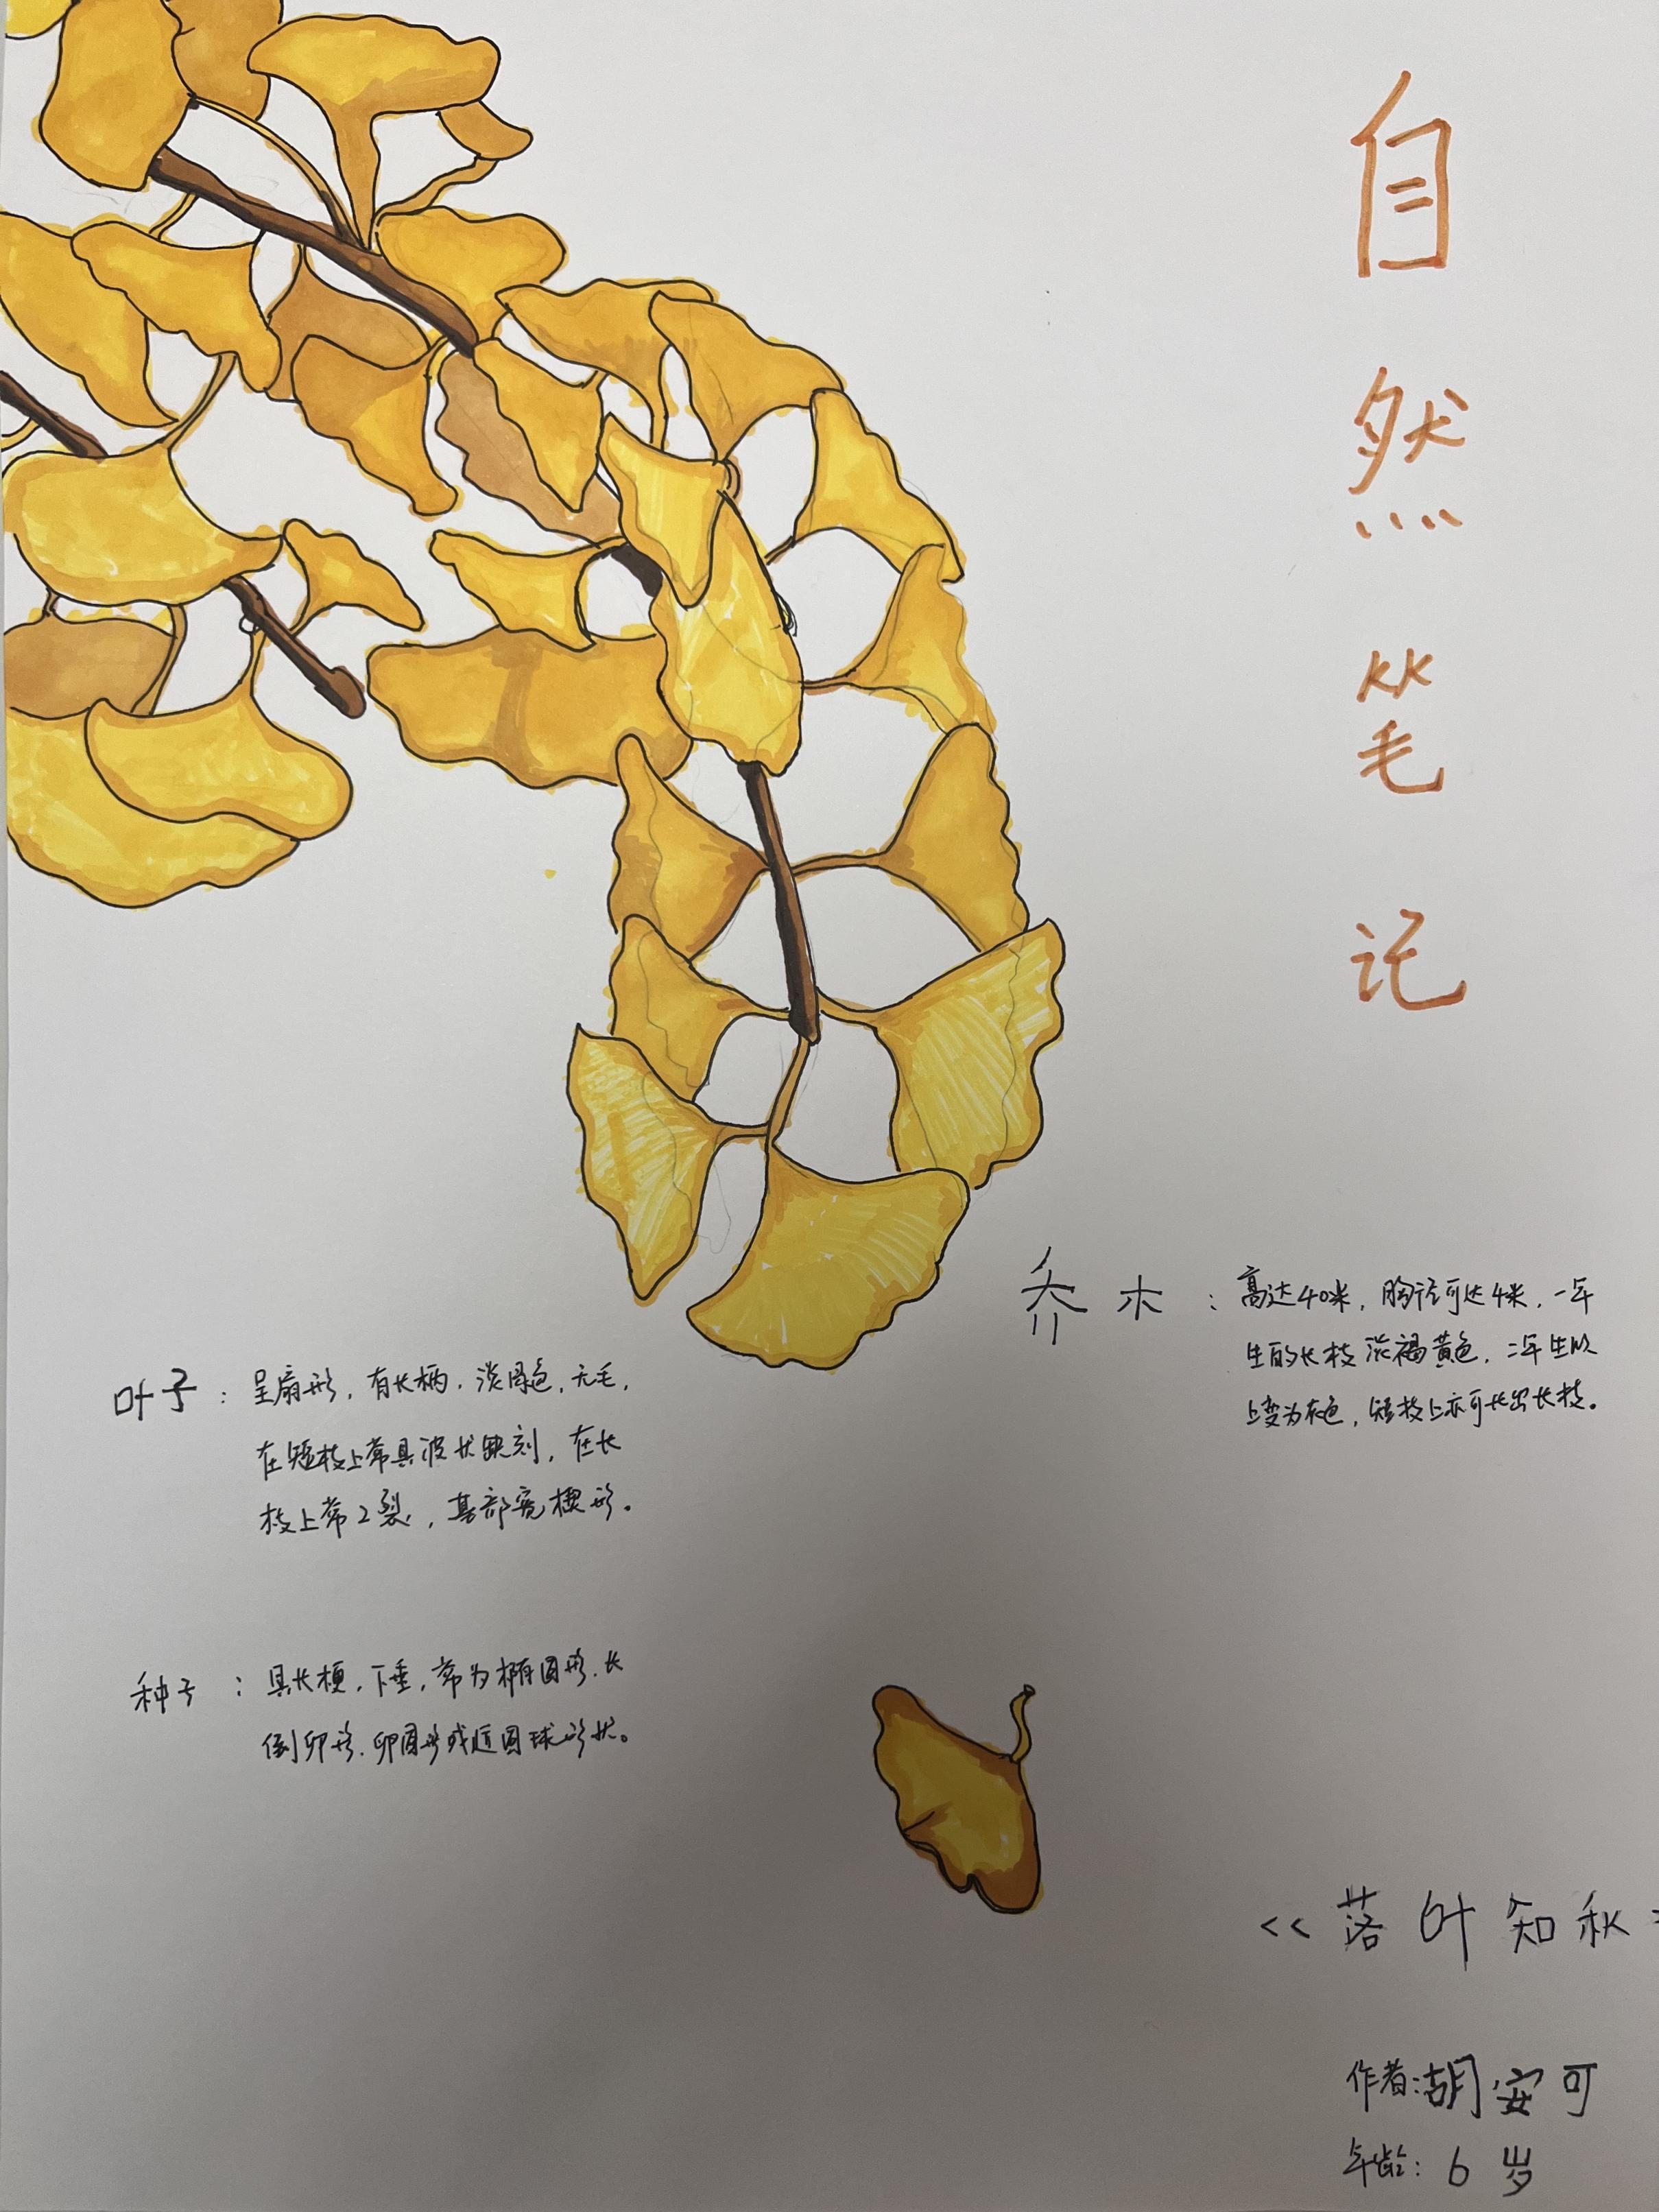 自然笔记
乔木：高达40米，胸径可达4米，一年
生的长枝淡褐黄色，二年生以
上变为灰色，短枝上亦可长出长枝。
叶子：呈扇形，有长柄，淡绿色，无毛，
在短枝上常具波状缺刻，在长
枝上常2裂，基部宽楔形。
种子：具长梗，下垂，常为椭圆形、长
倒卵形、卵圆形或近圆球形状。
<<落叶知秋>
作者:胡安可
年龄：6岁